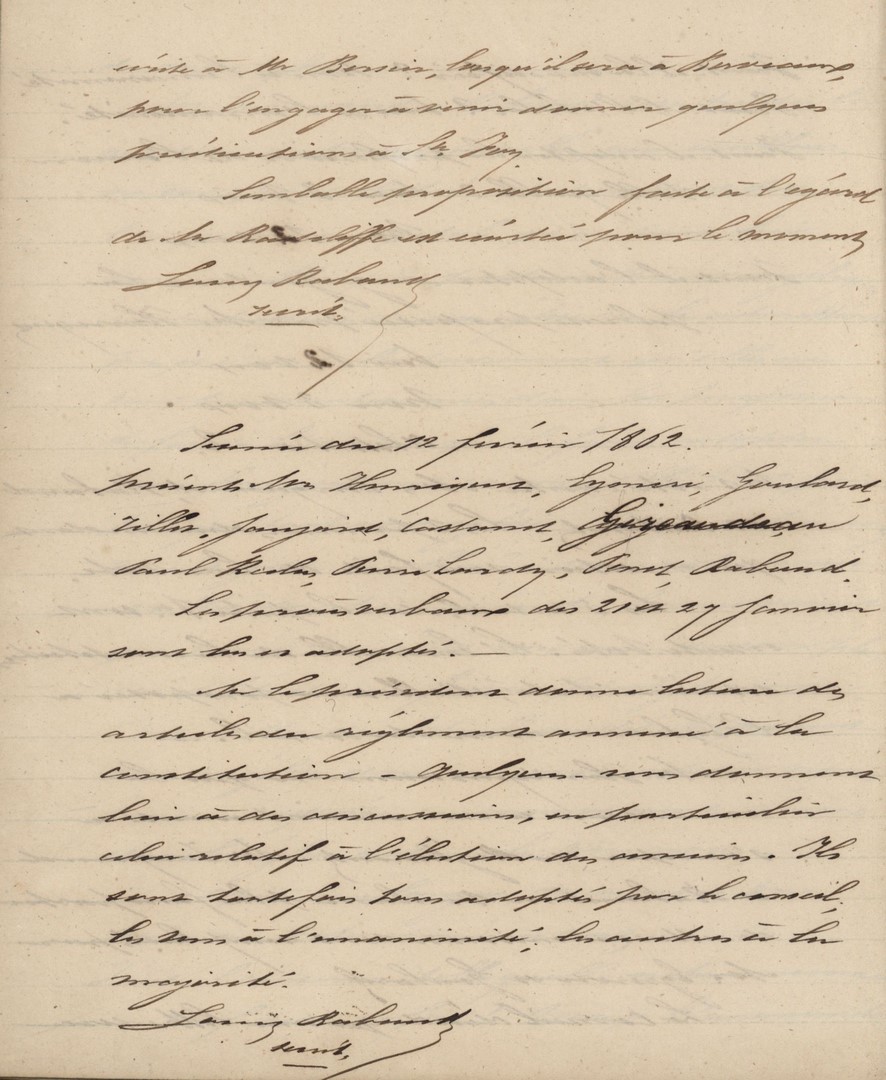 écrite à Mr Bersier, lorsqu'il sera à Bordeaux,
pour l'engager à venir donner quelques
prédications à Ste Foy
Semblable proposition faite à l'égard
de Mr Radcliffe est écartée pour le moment
Louis Rabaud
secrét.
Séance du 12 février 1862.
présents Mrs Henriquet, Eynéri, Goulard,
Villes, Jaujard, Castanet,
Paul Reclus, Pierre Lardy, Penet, Rabaud.
Les procès verbaux des 21 et 27 Janvier
sont lus et adoptés. —
Mr le président donne lecture des
articles du réglement annexé à la
constitution – Quelques-uns donnent
lieu à des discussions, en particulier
celui relatif à l'élection des anciens. Ils
sont toutefois tous adoptés par le conseil,
les uns à l'unanimité, les autres à la
majorité.
Louis Rabaud
secrét.